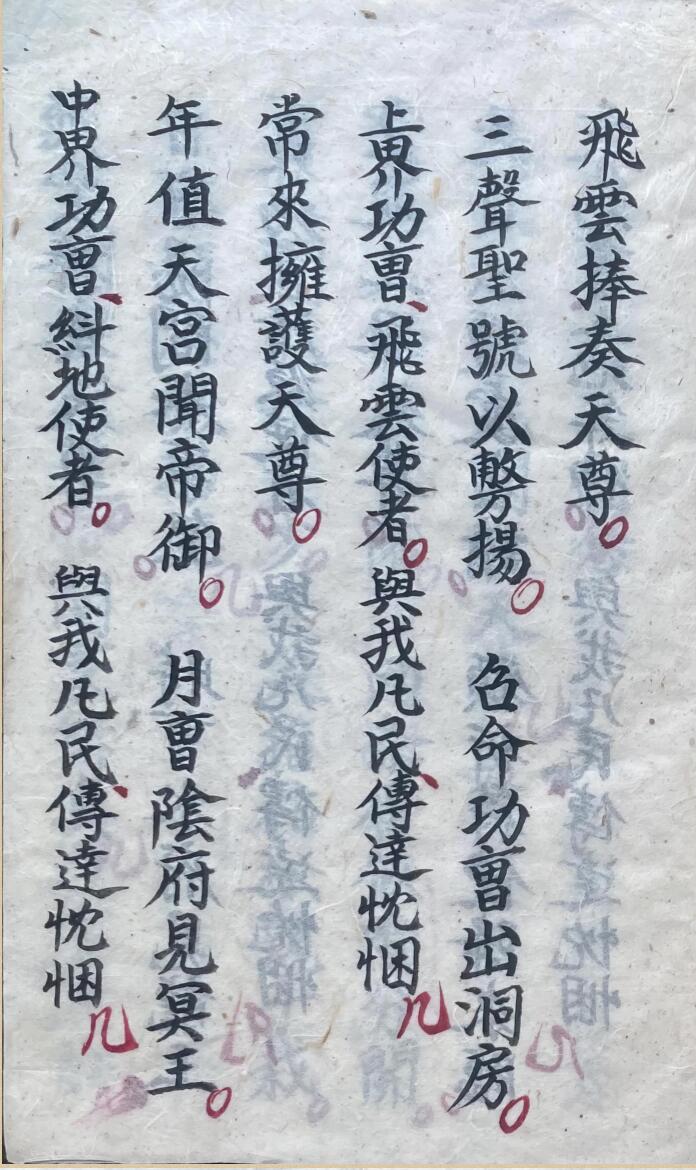 飛雲捧奏天尊
三聲聖號以剺揚 召命功曺出洞房
上界功曺飛雲使者 與我凡民傳達忱悃
常來擁護天尊
年值天宫聞帝御 月曺陰府見冥王
中界功曺糾地使者 與我凡民傳達忱悃